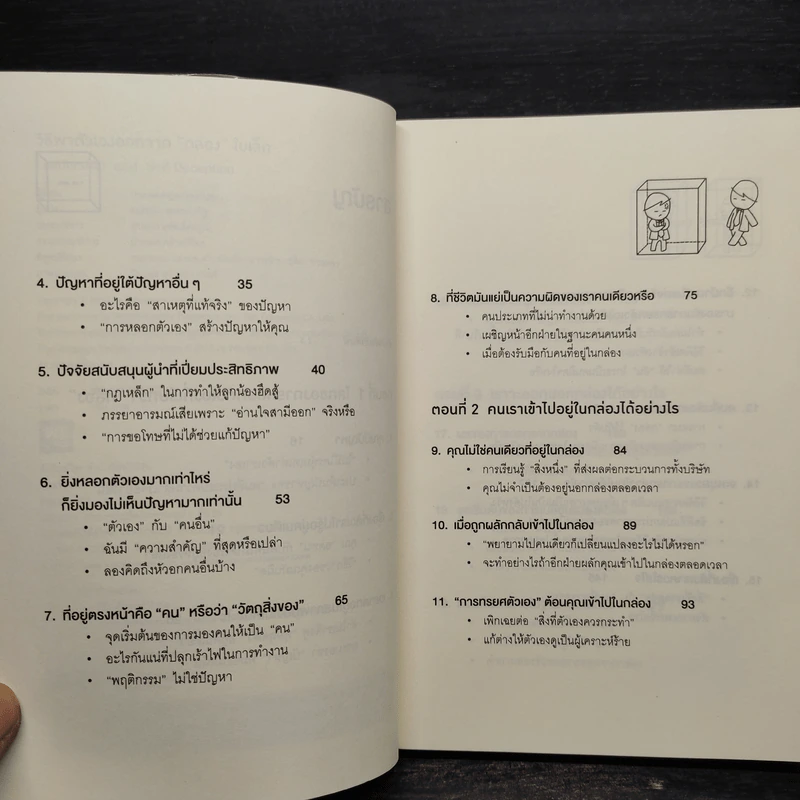 4. ปัญหาที่อยู่ใต้ปัญหาอื่น ๆ 35
• อะไรคือ “สาเหตุที่แท้จริง” ของปัญหา
• “การหลอกตัวเอง” สร้างปัญหาให้คุณ
5. ปัจจัยสนับสนุนผู้นำที่เปี่ยมประสิทธิภาพ 40
• “กฎเหล็ก” ในการทำให้ลูกน้องฮึดสู้
• ภรรยาอารมณ์เสียเพราะ “อ่านใจสามีออก” จริงหรือ
• “การขอโทษที่ไม่ได้ช่วยแก้ปัญหา”
6. ยิ่งหลอกตัวเองมากเท่าไหร่
ก็ยิ่งมองไม่เห็นปัญหามากเท่านั้น 53
• “ตัวเอง” กับ “คนอื่น”
• ฉันมี “ความสำคัญ” ที่สุดหรือเปล่า
• ลองคิดถึงหัวอกคนอื่นบ้าง
7. ที่อยู่ตรงหน้าคือ “คน” หรือว่า “วัตถุสิ่งของ” 65
• จุดเริ่มต้นของการมองคนให้เป็น “คน”
• อะไรกันแน่ที่ปลุกเร้าไฟในการทำงาน
• “พฤติกรรม” ไม่ใช่ปัญหา
8. ที่ชีวิตมันแย่เป็นความผิดของเราคนเดียวหรือ 75
• คนประเภทที่ไม่น่าทำงานด้วย
• เผชิญหน้าอีกฝ่ายในฐานะคนคนหนึ่ง
• เมื่อต้องรับมือกับคนที่อยู่ในกล่อง
ตอนที่ 2 คนเราเข้าไปอยู่ในกล่องได้อย่างไร
9. คุณไม่ใช่คนเดียวที่อยู่ในกล่อง 84
• การเรียนรู้ “สิ่งหนึ่ง” ที่ส่งผลต่อกระบวนการทั้งบริษัท
• คุณไม่จำเป็นต้องอยู่นอกกล่องตลอดเวลา
10. เมื่อถูกผลักกลับเข้าไปในกล่อง 89
• “พยายามไปคนเดียวก็เปลี่ยนแปลงอะไรไม่ได้หรอก”
• จะทำอย่างไรถ้าอีกฝ่ายผลักคุณเข้าไปในกล่องตลอดเวลา
11. “การทรยศตัวเอง” ต้อนคุณเข้าไปในกล่อง 93
• เพิกเฉยต่อ “สิ่งที่ตัวเองควรกระทำ”
• แก้ต่างให้ตัวเองดูเป็นผู้เคราะห์ร้าย